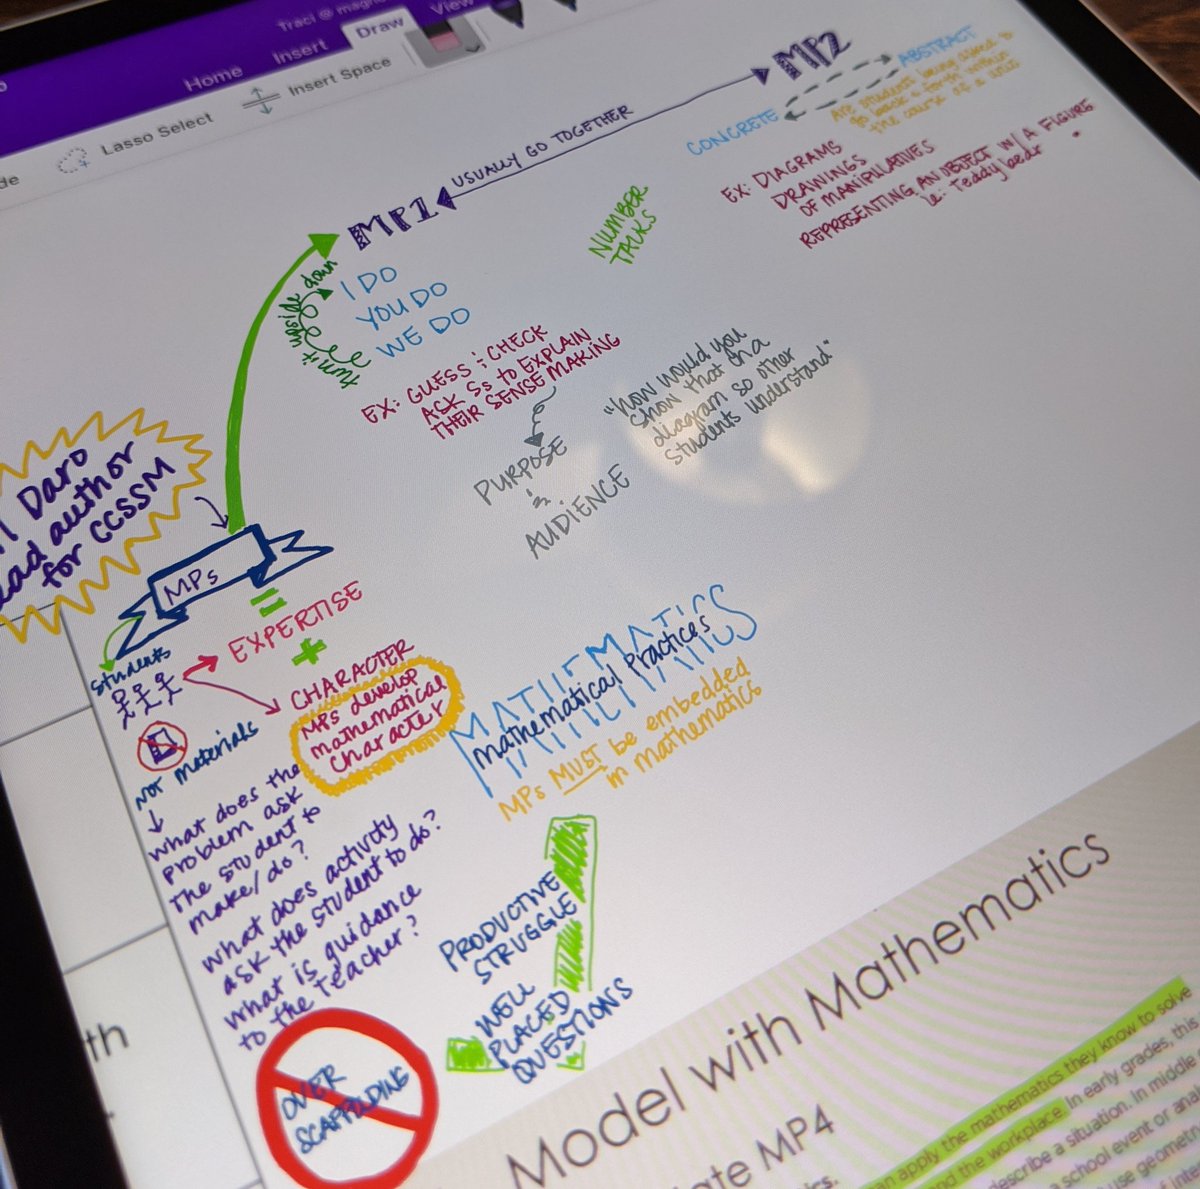 Traci @
Home Insert Draw View
Lasso Select Insert Space
MP1
USUALLY GO TOGETHER
MP2
CONCRETE
ABSTRACT
Are students being asked to
go back & forth within
the course of a unit
EX: DIAGRAMS
DRAWINGS
OF MANIPULATIVES
REPRESENTING AN OBJECT W/ A FIGURE
ie: Teddy bear
NUMBER
TALKS
turn it upside down
I DO
YOU DO
WE DO
EX: GUESS & CHECK
ASK Ss to EXPLAIN
THEIR SENSE MAKING
PURPOSE
&
AUDIENCE
"how would you
show that on a
diagram so other
students understand"
Daro
lead author
for CCSSM
MPs
=
EXPERTISE
+
CHARACTER
MPs develop
mathematical
character
students
NOT materials
what does the
problem ask
the student to
make/do?
what does activity
ask the student to do?
what is guidance
to the teacher?
MATHEMATICS
mathematical practices
MPs MUST be embedded
in mathematics
PRODUCTIVE
STRUGGLE
WELL
PLACED
QUESTIONS
OVER
SCAFFOLDING
Model with Mathematics
MP4
can apply the mathematics they know to solve
and the workplace. In early grades, this
describe a situation. In middle
a school event or